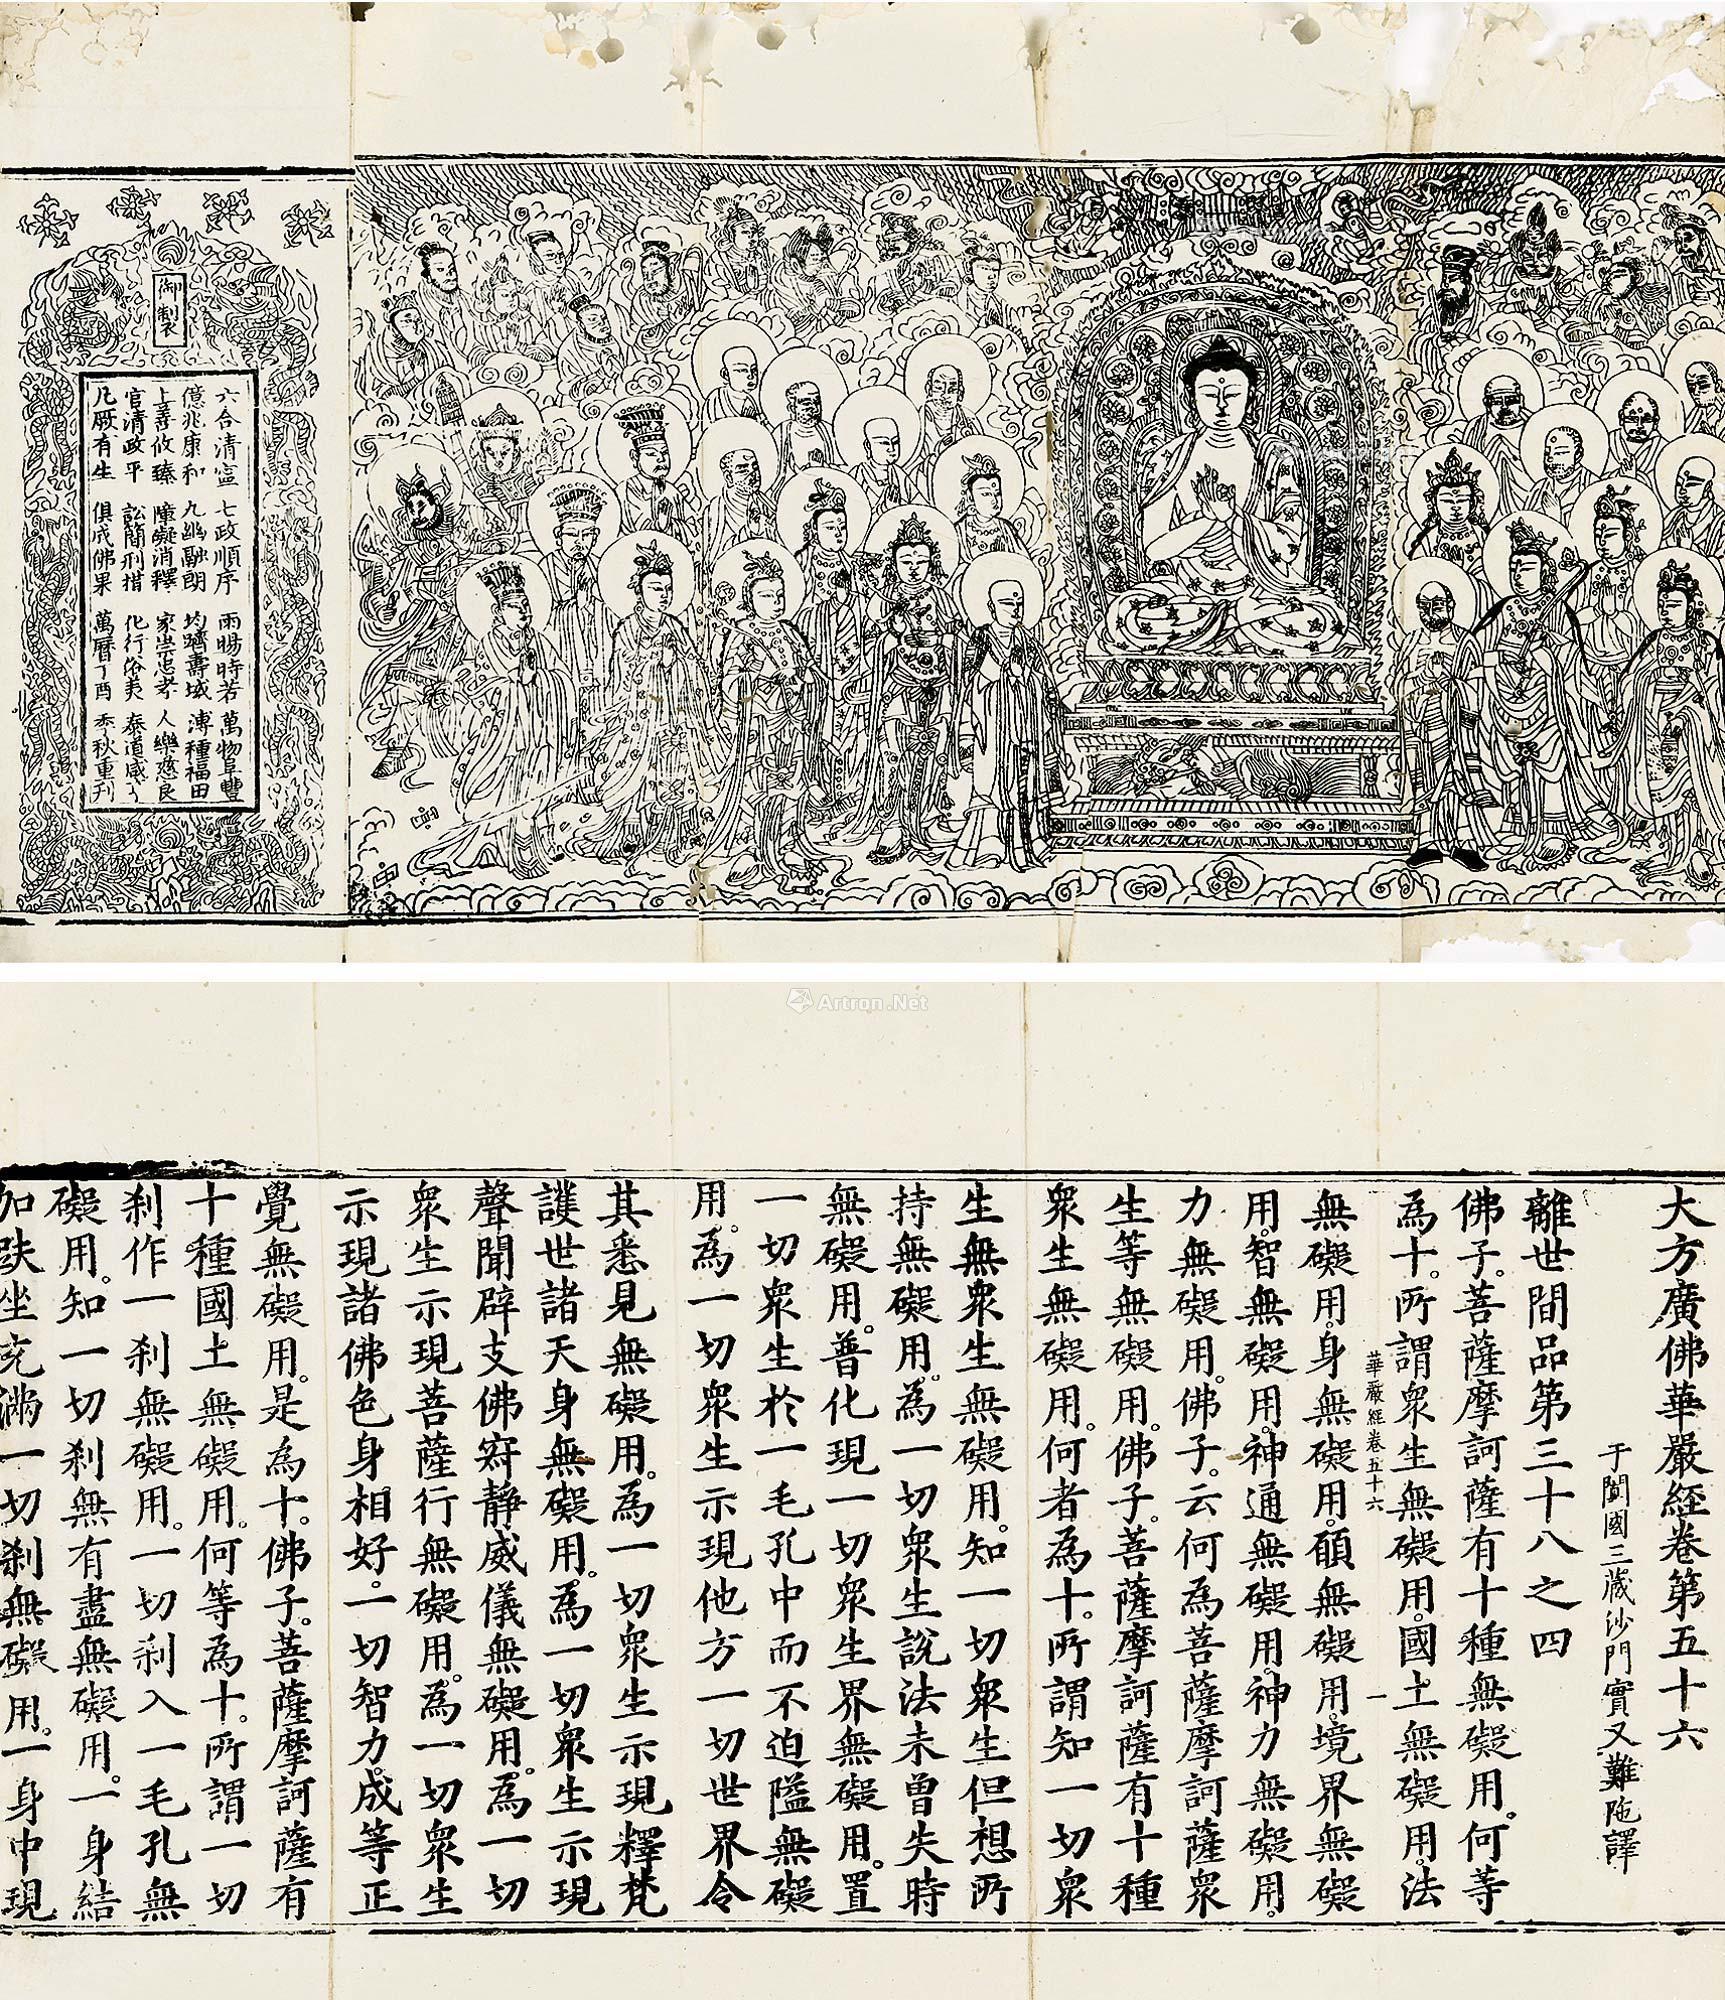 御製
六合清寧 七政順序 雨暘時若 萬物阜豐
億兆康和 九幽融朗 均躋壽域 溥種福田
上善攸臻 障礙消釋 家崇忠孝 人樂慈良
官清政平 訟簡刑措 化行俗美 泰道咸亨
凡厥有生 俱成佛果 萬曆丁酉 季秋重刊
Artron.Net
大方廣佛華嚴經卷第五十六
于闐國三藏沙門實叉難陁譯
離世間品第三十八之四
佛子。菩薩摩訶薩有十種無礙用。何等
為十。所謂眾生無礙用。國土無礙用。法
華嚴經卷五十六 一
無礙用。身無礙用。願無礙用。境界無礙
用。智無礙用。神通無礙用。神力無礙用。
力無礙用。佛子。云何為菩薩摩訶薩眾
生等無礙用。佛子。菩薩摩訶薩有十種
眾生無礙用。何者為十。所謂知一切眾
生無眾生無礙用。知一切眾生但想所
持無礙用。為一切眾生說法未曾失時
無礙用。普化現一切眾生界無礙用。置
一切眾生於一毛孔中而不迫隘無礙
用。為一切眾生示現他方一切世界令
其悉見無礙用。為一切眾生示現釋梵
護世諸天身無礙用。為一切眾生示現
聲聞辟支佛寂靜威儀無礙用。為一切
眾生示現菩薩行無礙用。為一切眾生
示現諸佛色身相好。一切智力。成等正
覺無礙用。是為十。佛子。菩薩摩訶薩有
十種國土無礙用。何等為十。所謂一切
剎作一剎無礙用。一切剎入一毛孔無
礙用。知一切剎無有盡無礙用。一身結
加趺坐充滿一切剎無礙用。一身中現